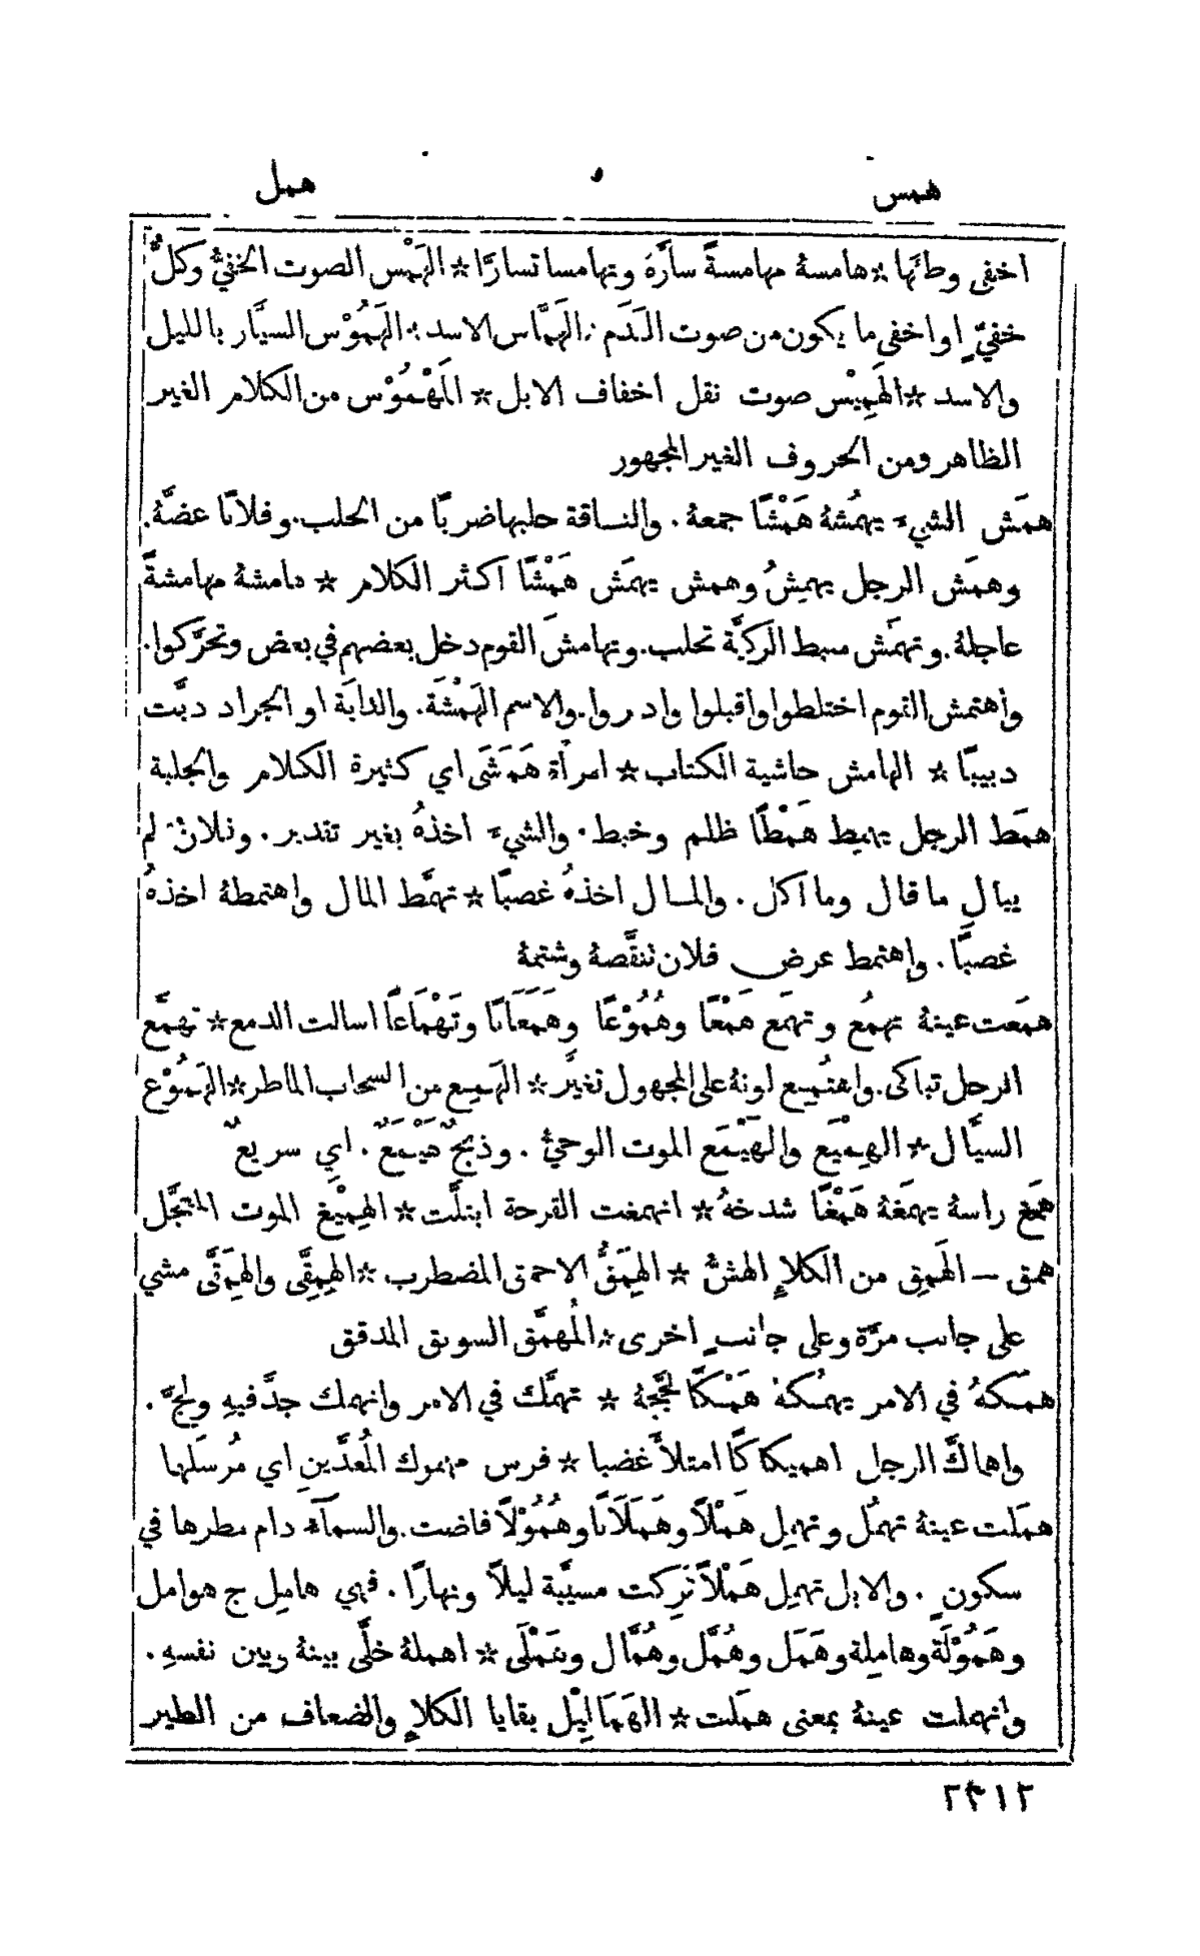 همس و همل
اخفى وطأَها * هامسهُ مهامسةً سارَّهُ وتهامسا تسارَّا * الهَمْس الصوت الخفيُّ وكلُّ
خفيٍّ او اخفى ما يكون من صوت القدم * الهَمَّاس الاسد * الهَمُوْس السيَّار بالليل
والاسد * الهَمِيْس صوت نقل اخفاف الابل * المَهْمُوْس من الكلام الغير
الظاهر ومن الحروف الغير المجهور
همَش الشيءَ يهمُشهُ هَمْشًا جمعهُ . والناقة حلبها ضربًا من الحلب . وفلانًا عضَّهُ .
وهمَش الرجل يهمِشُ وهمش يهمَش هَمْشًا اكثر الكلام * هامشهُ مهامشةً
عاجلهُ . وتهمَّش مبط الركيَّة تحلب . وتهامشَ القوم دخل بعضهم في بعض وتحرَّكوا .
واهتمش القوم اختلطوا واقبلوا وادبروا . والاسم الهَمْشَة . والدابَّة او الجراد دبَّت
دبيبًا * الهامش حاشية الكتاب * امرأَة هَمَشَى اي كثيرة الكلام والجلبة
همَط الرجل يهمِط هَمْطًا ظلم وخبط . والشيءَ اخذهُ بغير تقدير . وفلانٌ لم
يبالِ ما قال وما أكل . والمال اخذهُ غصبًا * تهمَّط المال واهتمطهُ اخذهُ
غصبًا . واهتمط عرض فلان تنقَّصهُ وشتمهُ
همَعت عينهُ تهمُع وتهمَع هَمْعًا وهُمُوْعًا وهَمَعَانًا وتَهْمَاعًا اسالت الدمع * تهمَّع
الرجل تباكى . واهتُمِع لونهُ على المجهول تغيَّر * الهَمِع من السحاب الماطر * الهَمُوْع
السيَّال * الهِمْيَع والهَيْمَع الموت الوحيُّ . وذبحٌ هَيْمَعٌ . اي سريعٌ
همَغ راسهُ يهمَغهُ هَمْغًا شدخهُ * انهمغت القرحة ابتلَّت * الهِمْيَغ الموت المتعجَّل
همق – الهَمِق من الكلاءِ الهشُّ * الهِمَقُّ الاحمق المضطرب * الهِمِقَّى والهِمَقَّى مشي
على جانب مرَّة وعلى جانبٍ اخرى * المُهمَّق السويق المدقق
همَكهُ في الامر يهمُكهُ هَمْكًا لجَّجهُ * تهمَّك في الامر وانهمك جدَّ فيهِ ولجَّ .
واهماكَّ الرجل اهميكاكًا امتلأَ غضبا * فرس مهموك المُعدَّينِ اي مُرسَلها
همَلت عينهُ تهمُل وتهمِل هَمْلًا وهَمَلَانًا وهُمُوْلًا فاضت . والسمآءُ دام مطرها في
سكونٍ . والابل تهمِل هَمْلًا تُرِكت مسيَّبة ليلًا ونهارًا . فهي هامِل ج هوامل
وهَمُوْلَة وهامِلة وهَمَل وهُمَّل وهُمَّال وهَمْلَى * اهملهُ خلَّى بينهُ وبين نفسهِ .
وانهملت عينهُ بمعنى همَلت * الهَمَالِيْل بقايا الكلاءِ والضعاف من الطير